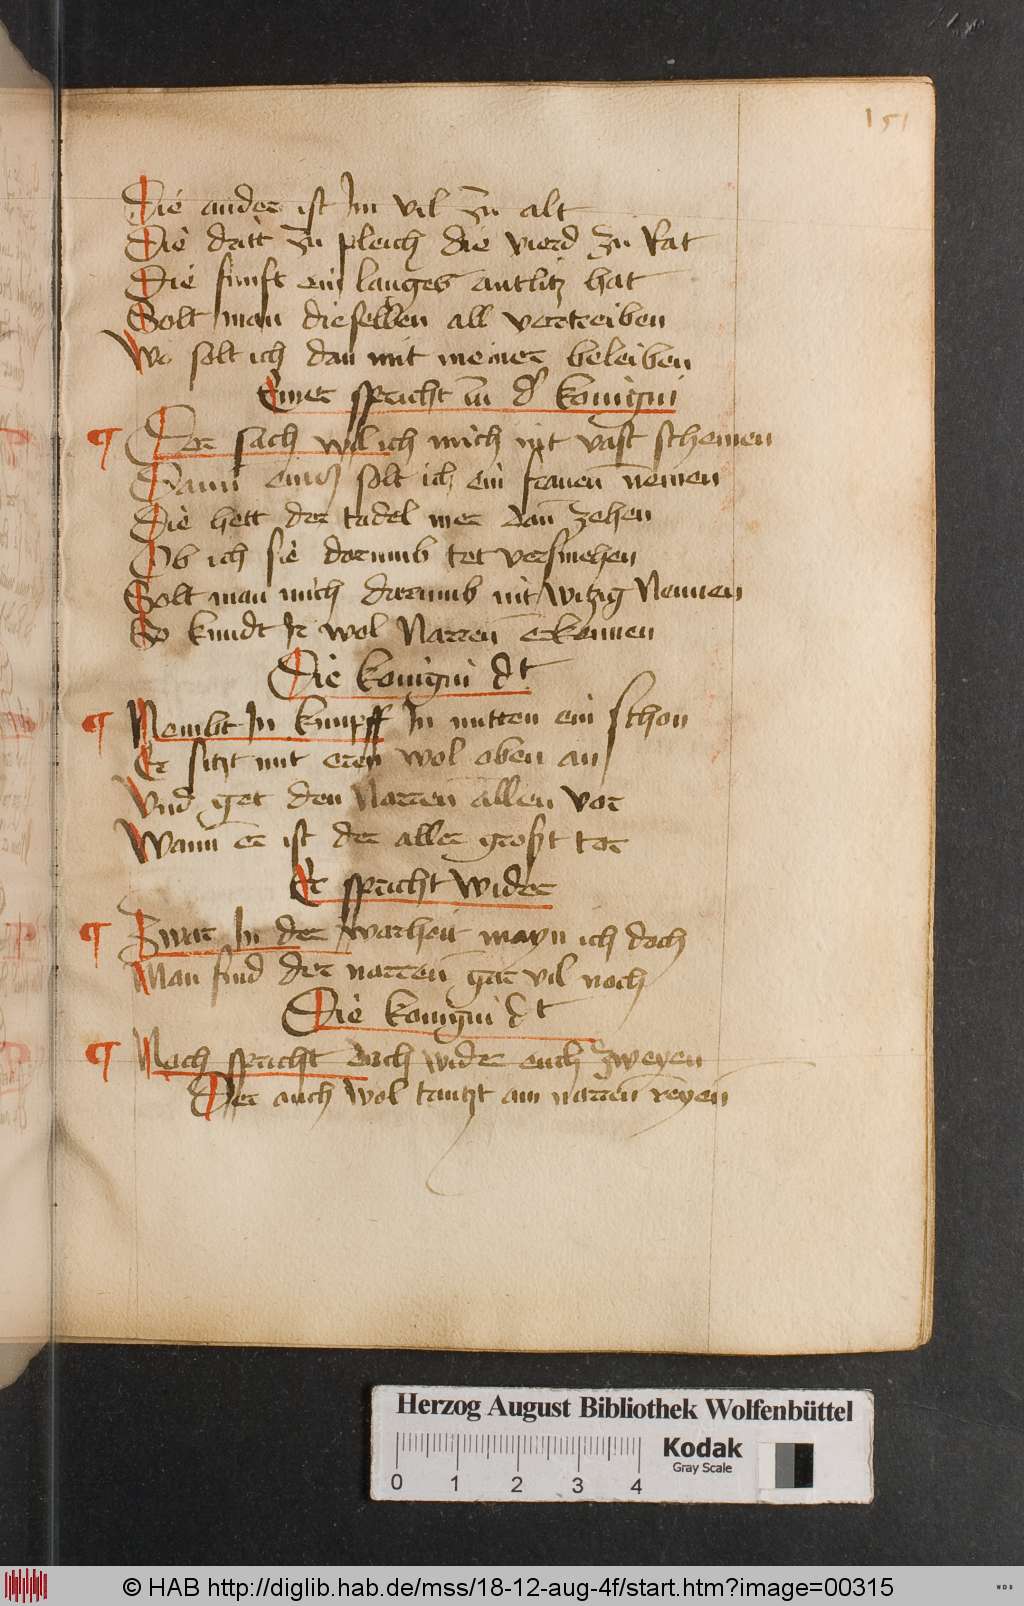 151
Die ander ist Im vil zu alt
Die dritt zu pleich die vierd zu rat
Die funft ein langes antlitz hat
Solt man dieselben all vertreiben
Wo solt ich dan mit meiner beleiben
Einer spricht zu d' konigin
¶ Der sach wil ich mich nit vast schemen
Dann solt ich ein frauen nemen
Die hett der tadel mer dan zehen
Ob ich sie dorumb tet versmehen
Solt man mich darumb nit witzig Nennen
So kundt Ir wol Narren erkennen
Die konigin dt
¶ Nembt In knupff In mitten ein schon
Er sitzt mit eren wol oben an
Vnd get den Narren allen vor
Wann er ist der aller grost tor
Er spricht wider
¶ Zwar In der warheit mayn ich doch
Man find der narren gar vil noch
Die konigin dt
¶ Noch spricht euch wider euch zweyen
Der auch wol tantzt am narren reyen
Herzog August Bibliothek Wolfenbüttel
0 1 2 3 4
Kodak
Gray Scale
© HAB http://diglib.hab.de/mss/18-12-aug-4f/start.htm?image=00315